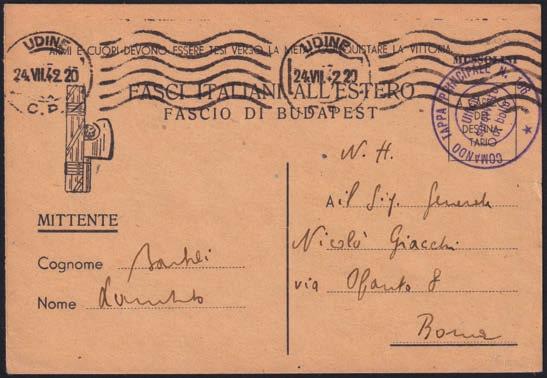 ARMI E CUORI DEVONO ESSERE TESI VERSO LA META: CONQUISTARE LA VITTORIA.
MUSSOLINI
UDINE
24.VII.42.20
C.P.
UDINE
24.VII.42.20
C.P.
FASCI ITALIANI ALL'ESTERO
FASCIO DI BUDAPEST
COMANDO TAPPA PRINCIPALE N.
A CARICO
DEL
DESTINA
TARIO
N. H.
A il Sig. Generale
Nicolò Giacchi
via Ofanto 8
Roma
MITTENTE
Cognome
Nome